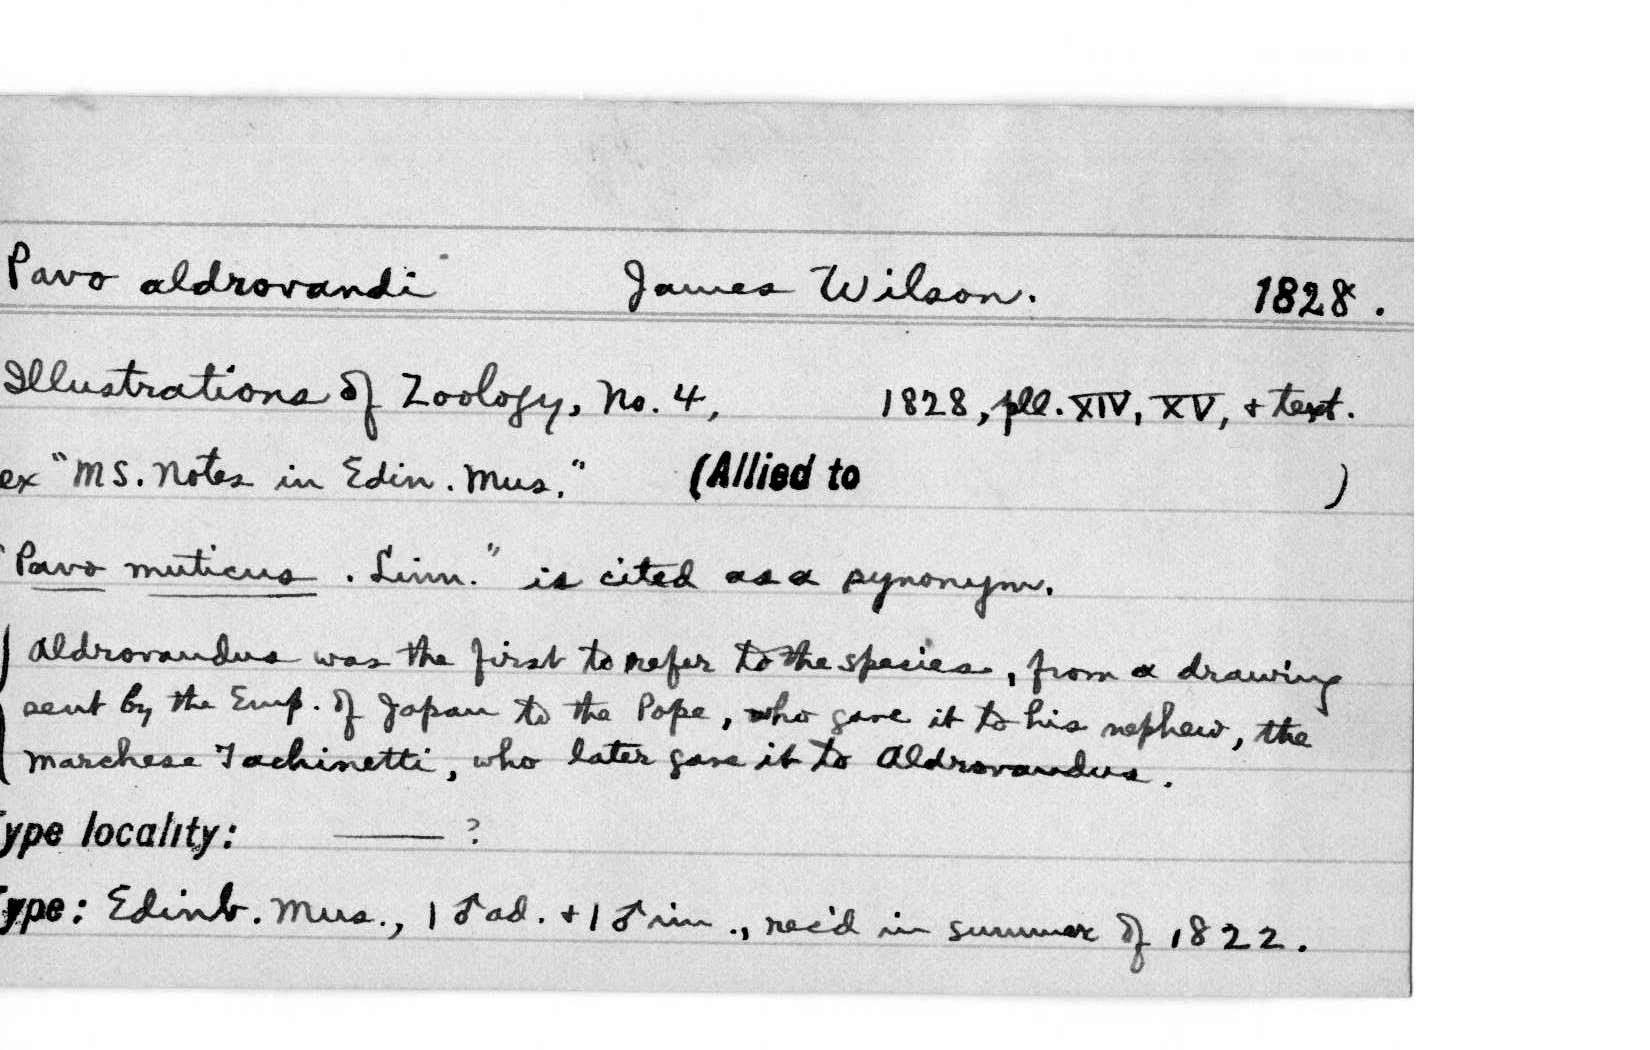 Pavo aldrovandi James Wilson. 1828.
Illustrations of Zoology, No. 4, 1828, pll. XIV, XV, + text.
ex "MS. Notes in Edin. Mus." (Allied to )
"Pavo muticus. Linn." is cited as a synonym.
Aldrovandus was the first to refer to the species, from a drawing
sent by the Emp. of Japan to the Pope, who gave it to his nephew, the
Marchese Tachinetti, who later gave it to Aldrovandus.
Type locality: ——— ?
Type: Edinb. Mus., 1 ♂ ad. + 1 ♂ im., rec'd in summer of 1822.